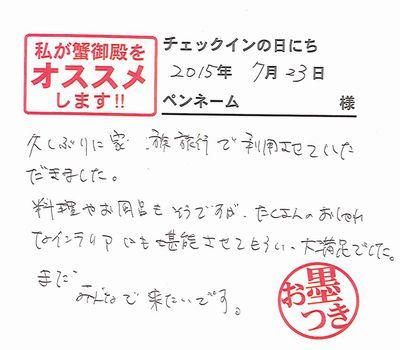 私が蟹御殿を
オススメ
します!!
チェックインの日にち
2015年 7月23日
ペンネーム 様
久しぶりに家族旅行で利用させていた
だきました。
料理やお風呂もそうですが、たくさんのおしゃれ
なインテリアにも堪能させてもらい、大満足でした。
また
みんなで来たいです。
お墨
つき